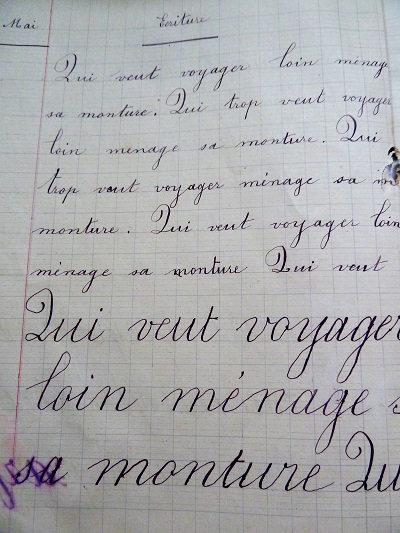 Mai Ecriture
Qui veut voyager loin ménage
sa monture. Qui trop veut voyager
loin menage sa monture. Qui
trop veut voyager ménage sa m
monture. Qui veut voyager loin
ménage sa monture Qui veut
Qui veut voyager
loin ménage s
sa monture Qui